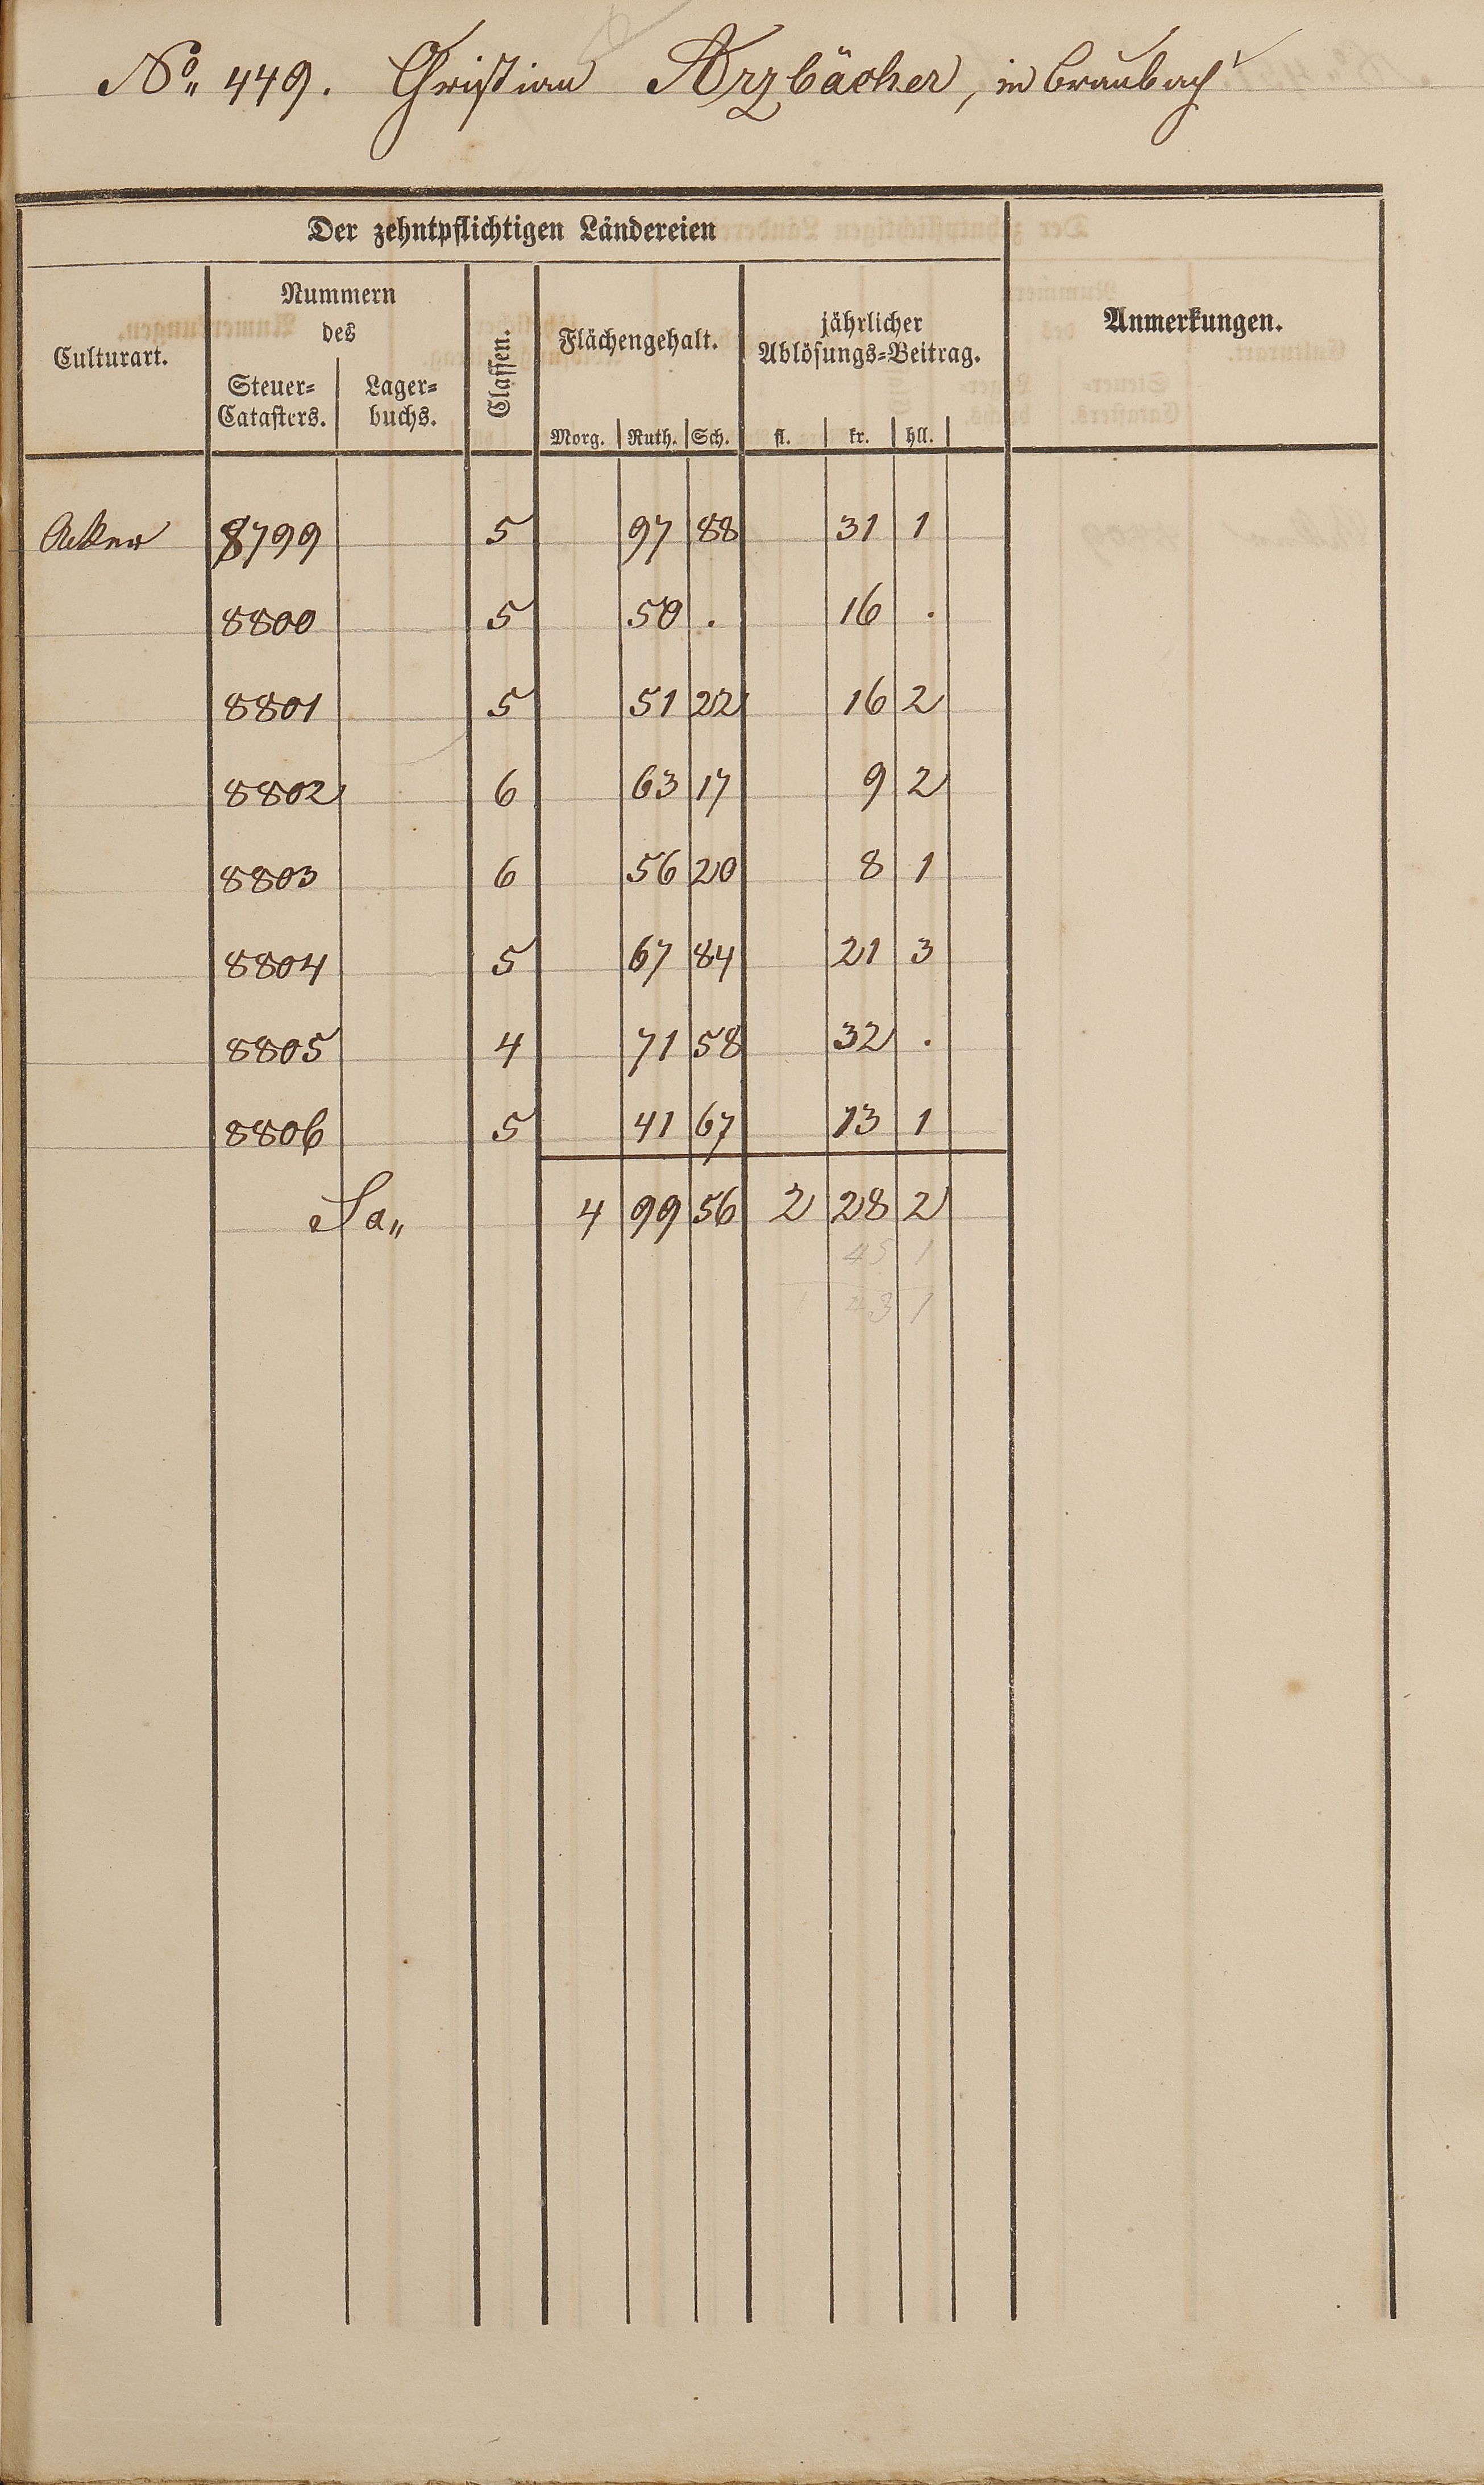 No„ 449. Christian Arzbächer, in Braubach
Der zehntpflichtigen Ländereien
Culturart.
Nummern
des
Steuer-
Catasters.
Lager-
buchs.
Classen.
Flächengehalt.
Morg. Ruth. Sch.
jährlicher
Ablösungs-Beitrag.
fl. kr. hll.
Anmerkungen.
Acker 8799 5 97 88 31 1
8800 5 50 . 16 .
8801 5 51 22 16 2
8802 6 63 17 9 2
8803 6 56 20 8 1
8804 5 67 84 21 3
8805 4 71 58 32 .
8806 5 41 67 13 1
Sa„ 4 99 56 2 28 2
45 1
1 43 1